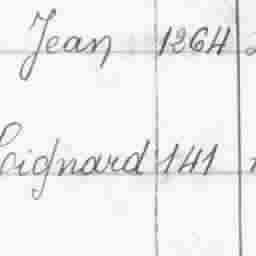 Jean 1264
Coignard 141